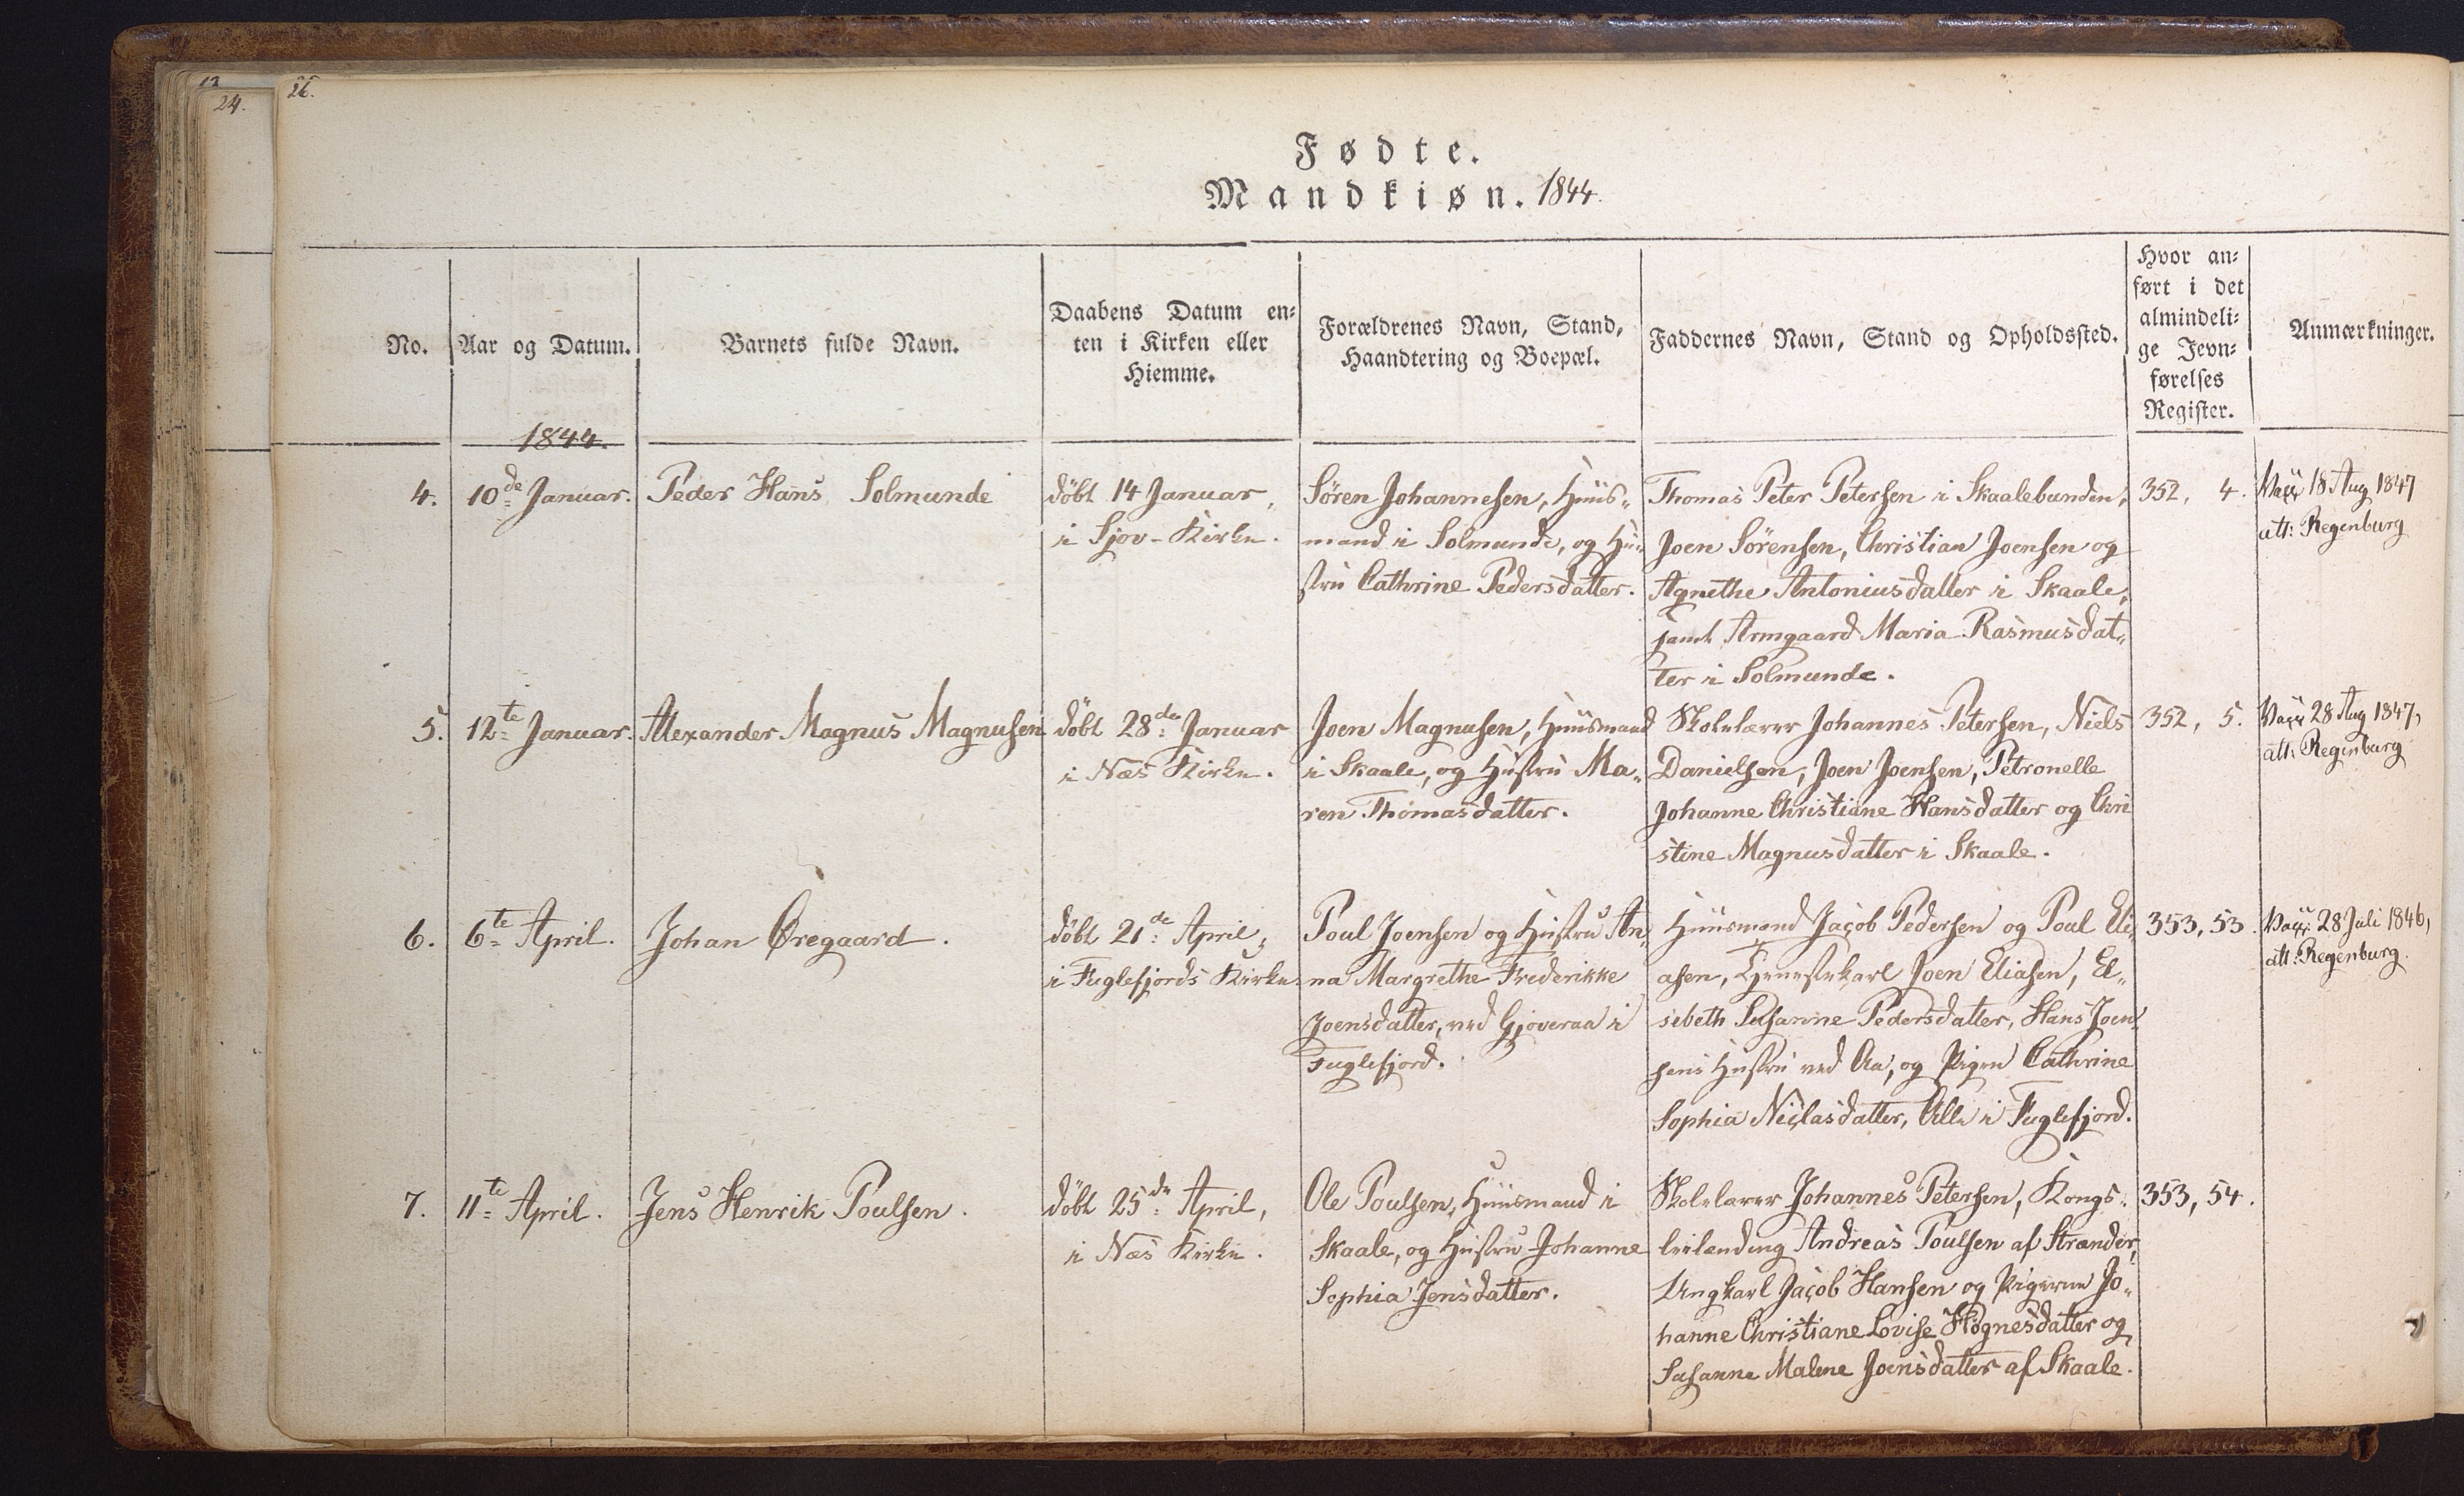 12
24.
26.
Fødte.
Mandkiøn. 1844.
No.
Aar og Datum.
Barnets fulde Navn.
Daabens Datum en-
ten i Kirken eller
Hiemme.
Forældrenes Navn, Stand,
Haandtering og Boepæl.
Faddernes Navn, Stand og Opholdssted.
Hvor an-
ført i det
almindeli-
ge Jevn-
førelses
Register.
Anmærkninger.
1844.
4.
10de Januar.
Peder Hans Solmunde
döbt 14 Januar,
i Sjov-Kirke.
Sören Johannesen, Huus-
mand i Solmunde, og Hu-
stru Cathrine Pedersdatter.
Thomas Peter Petersen i Skaalebunden,
Joen Sörensen, Christian Joensen og
Agnethe Antoniusdatter i Skaale,
samt Armgaard Maria Rasmusdat-
ter i Solmunde.
352, 4.
Vacc 18 Aug 1847
att: Regenburg
5.
12te Januar.
Alexander Magnus Magnusen
döbt 28de Januar
i Næs Kirke.
Joen Magnusen, Huusmand
i Skaale, og Hustru Ma-
ren Thomasdatter.
Skolelærer Johannes Petersen, Niels
Danielsen, Joen Joensen, Petronelle
Johanne Christiane Hansdatter og Chri
stine Magnusdatter i Skaale.
352, 5.
Vacc 28 Aug 1847,
att: Regenburg
6.
6te April.
Johan Øregaard.
döbt 21de April,
i Fuglefjords Kirke.
Poul Joensen og Hustru An-
na Margrethe Frederikke
Joensdatter, ved Gjoveraa i
Fuglefjord.
Huusmand Jacob Pedersen og Poul Eli-
asen, Tjenestekarl Joen Eliasen, El-
sebeth Susanne Pedersdatter, Hans Joen-
sens Hustru ved Aa, og Pigen Cathrine
Sophia Niclasdatter, Alle i Fuglefjord.
353, 53.
Vacc. 28 Juli 1846,
att: Regenburg.
7.
11te April.
Jens Henrik Poulsen.
döbt 25de April,
i Næs Kirke.
Ole Poulsen, Huusmand i
Skaale, og Hustru Johanne
Sophia Jensdatter.
Skolelærer Johannes Petersen, Kongs-
leilænding Andreas Poulsen af Strænder,
Ungkarl Jacob Hansen og Pigerne Jo-
hanne Christiane Lovise Högnesdatter og
Susanne Malene Joensdatter af Skaale.
353, 54.